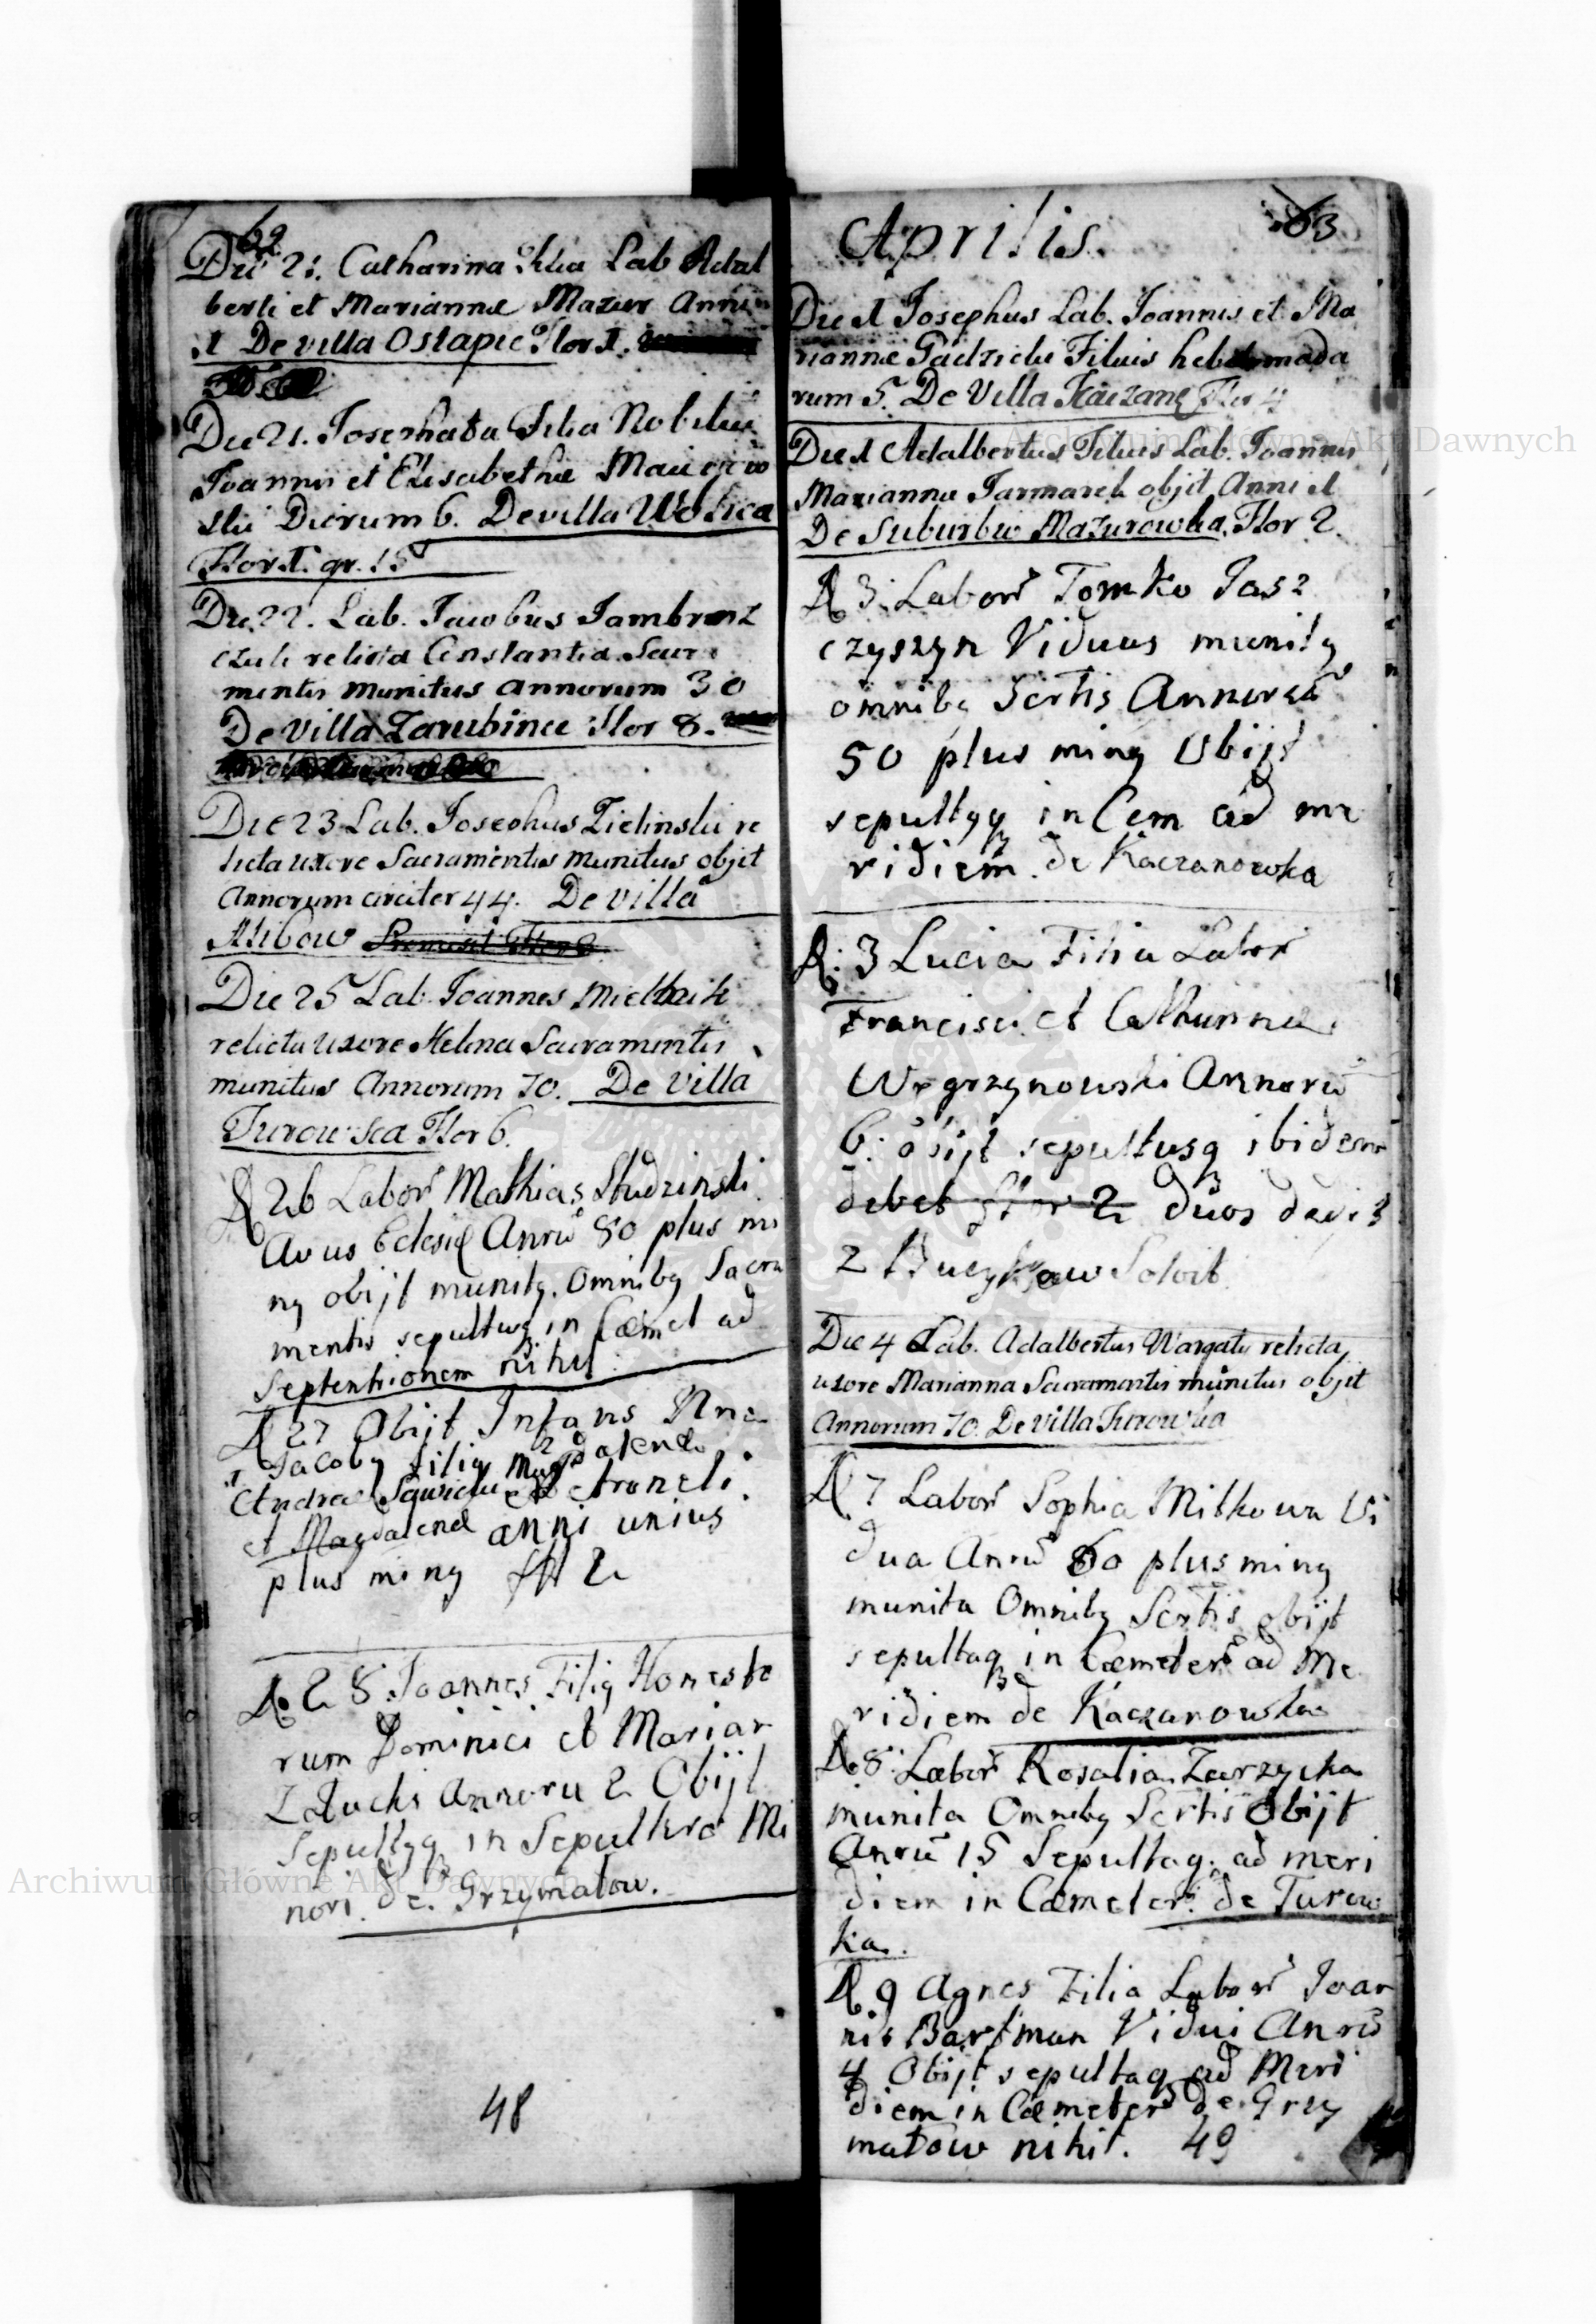 62
Die 21. Catharina Filia Lab Adal
berti et Mariannæ Mazur Anni
1 De villa Ostapie Flor 1.
Die 21. Josephata Filia Nobilium
Joannis et Elisabethæ
ski Dierum 6. De villa Wolica
Flor 1. gr. 15
Die 22. Lab. Jacobus
relicta Constantia Sacra
mentis munitus annorum 30
De Villa Zarubince Flor 8.
Die 23 Lab. Josephus Zielinski re
licta uxore Sacramentis munitus obijt
Annorum circiter 44. De villa
Die 25 Lab. Joannes Mielnik
relicta uxore Helena Sacramentis
munitus Annorum 70. De Villa
Turowka Flor 6.
D 26 Labor Mathias Studzinski
Avus Eclesiæ Anrũ 80 plus mi
nꝰ obijt munitꝰ omnibꝰ Sacra
mentis sepultusqꝫ in Cæmet ad
Septentrionem nihil
D 27 Obijt Infans
1 Jacobꝰ filiꝰ Magdalenæ
Andreæ
et Magdalenæ anni unius
plus minꝰ fl 2
D. 28. Joannes Filiꝰ Honesto
rum Dominici et Marian
Załuchi Annoru 2 Obijt
Sepultꝰqꝫ in Sepulhro Mi
nori. de. Grzymałow.
48
63
Aprilis.
Die 1 Josephus Lab. Joannis et Ma
riannæ Gadzicki Filius hebdomada
rum 5. De Villa Kaczano Flor 4
Die 1 Adalbertus Filius Lab. Joannis
Mariannæ Jarmarek objit Anni 1
De Suburbio Mazurowka. Flor 2.
D 3. Labor Tomko Jasz
czyszyn Viduus munitꝰ
omnibꝰ Scrtis Annorũ
50 plus minꝰ Obijt
sepultꝰqꝫ in Cem ad me
ridiem. de Kaczanowka
D. 3 Lucia Filia Labor
Francisci et Catharinæ
Węgrzynowski Annorũ
6. obijt sepultusq ibidem
debet flor 2 duos
2 Solvit
Die 4 Lab. Adalbertus Wargaty relicta
uxore Marianna Sacramentis munitus objit
Annorum 70. De villa Turowka
D. 7 Labor Sophia Mitkowa Vi
dua Anrũ 60 plus minꝰ
munita Omnibꝰ Scrtis obijt
sepultaqꝫ in Cæmeter ad Me
ridiem de Kaczanowka
D. 8. Labor Rosalia Zarzycka
munita Omnibꝰ Scrtis Obijt
Anrũ 15 Sepultaq. ad meri
diem in Cæmeter. de Turow
ka.
D. 9 Agnes Filia Labor Joan
nis Bartman Vidui Anrũ
4 Obijt sepultaq ad Meri
diem in Cæmeter de Grzy
małow nihil. 49
Archiwum Główne Akt Dawnych
Archiwum Główne Akt Dawnych